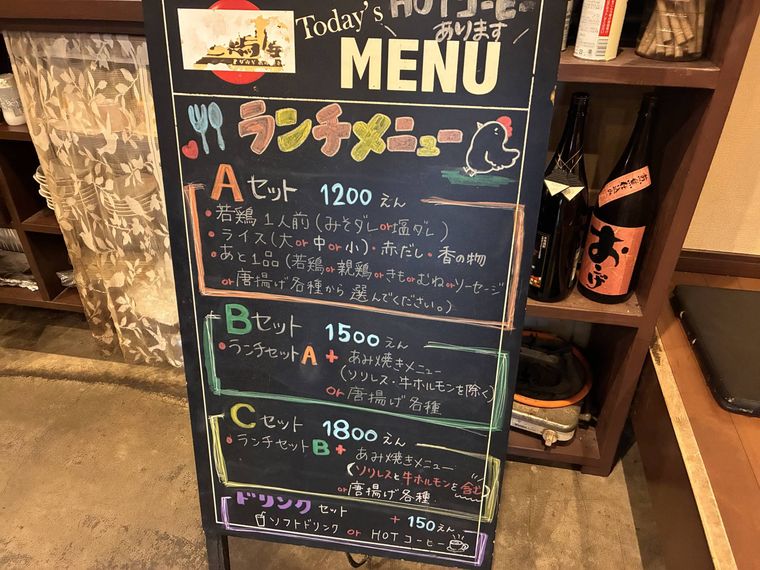 Today's
HOTコーヒー
あります
MENU
ランチメニュー
Aセット 1200えん
・若鶏1人前(みそダレor塩ダレ)
・ライス(大or中or小)・赤だし・香の物
・あと1品(若鶏or親鶏orきもorむねorソーセージ
or唐揚げ各種から選んでください。)
Bセット 1500えん
・ランチセットA + あみ焼きメニュー
(ソリレス・牛ホルモンを除く)
or唐揚げ各種
Cセット 1800えん
・ランチセットB + あみ焼きメニュー
(ソリレスと牛ホルモンを含む)
or唐揚げ各種
ドリンクセット +150えん
ソフトドリンク or HOTコーヒー